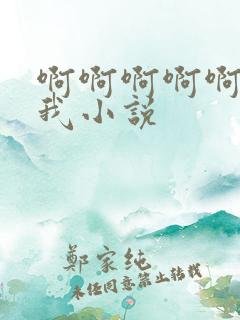 啊啊啊啊啊
我小说
鄭家纯
未经同意禁止转载